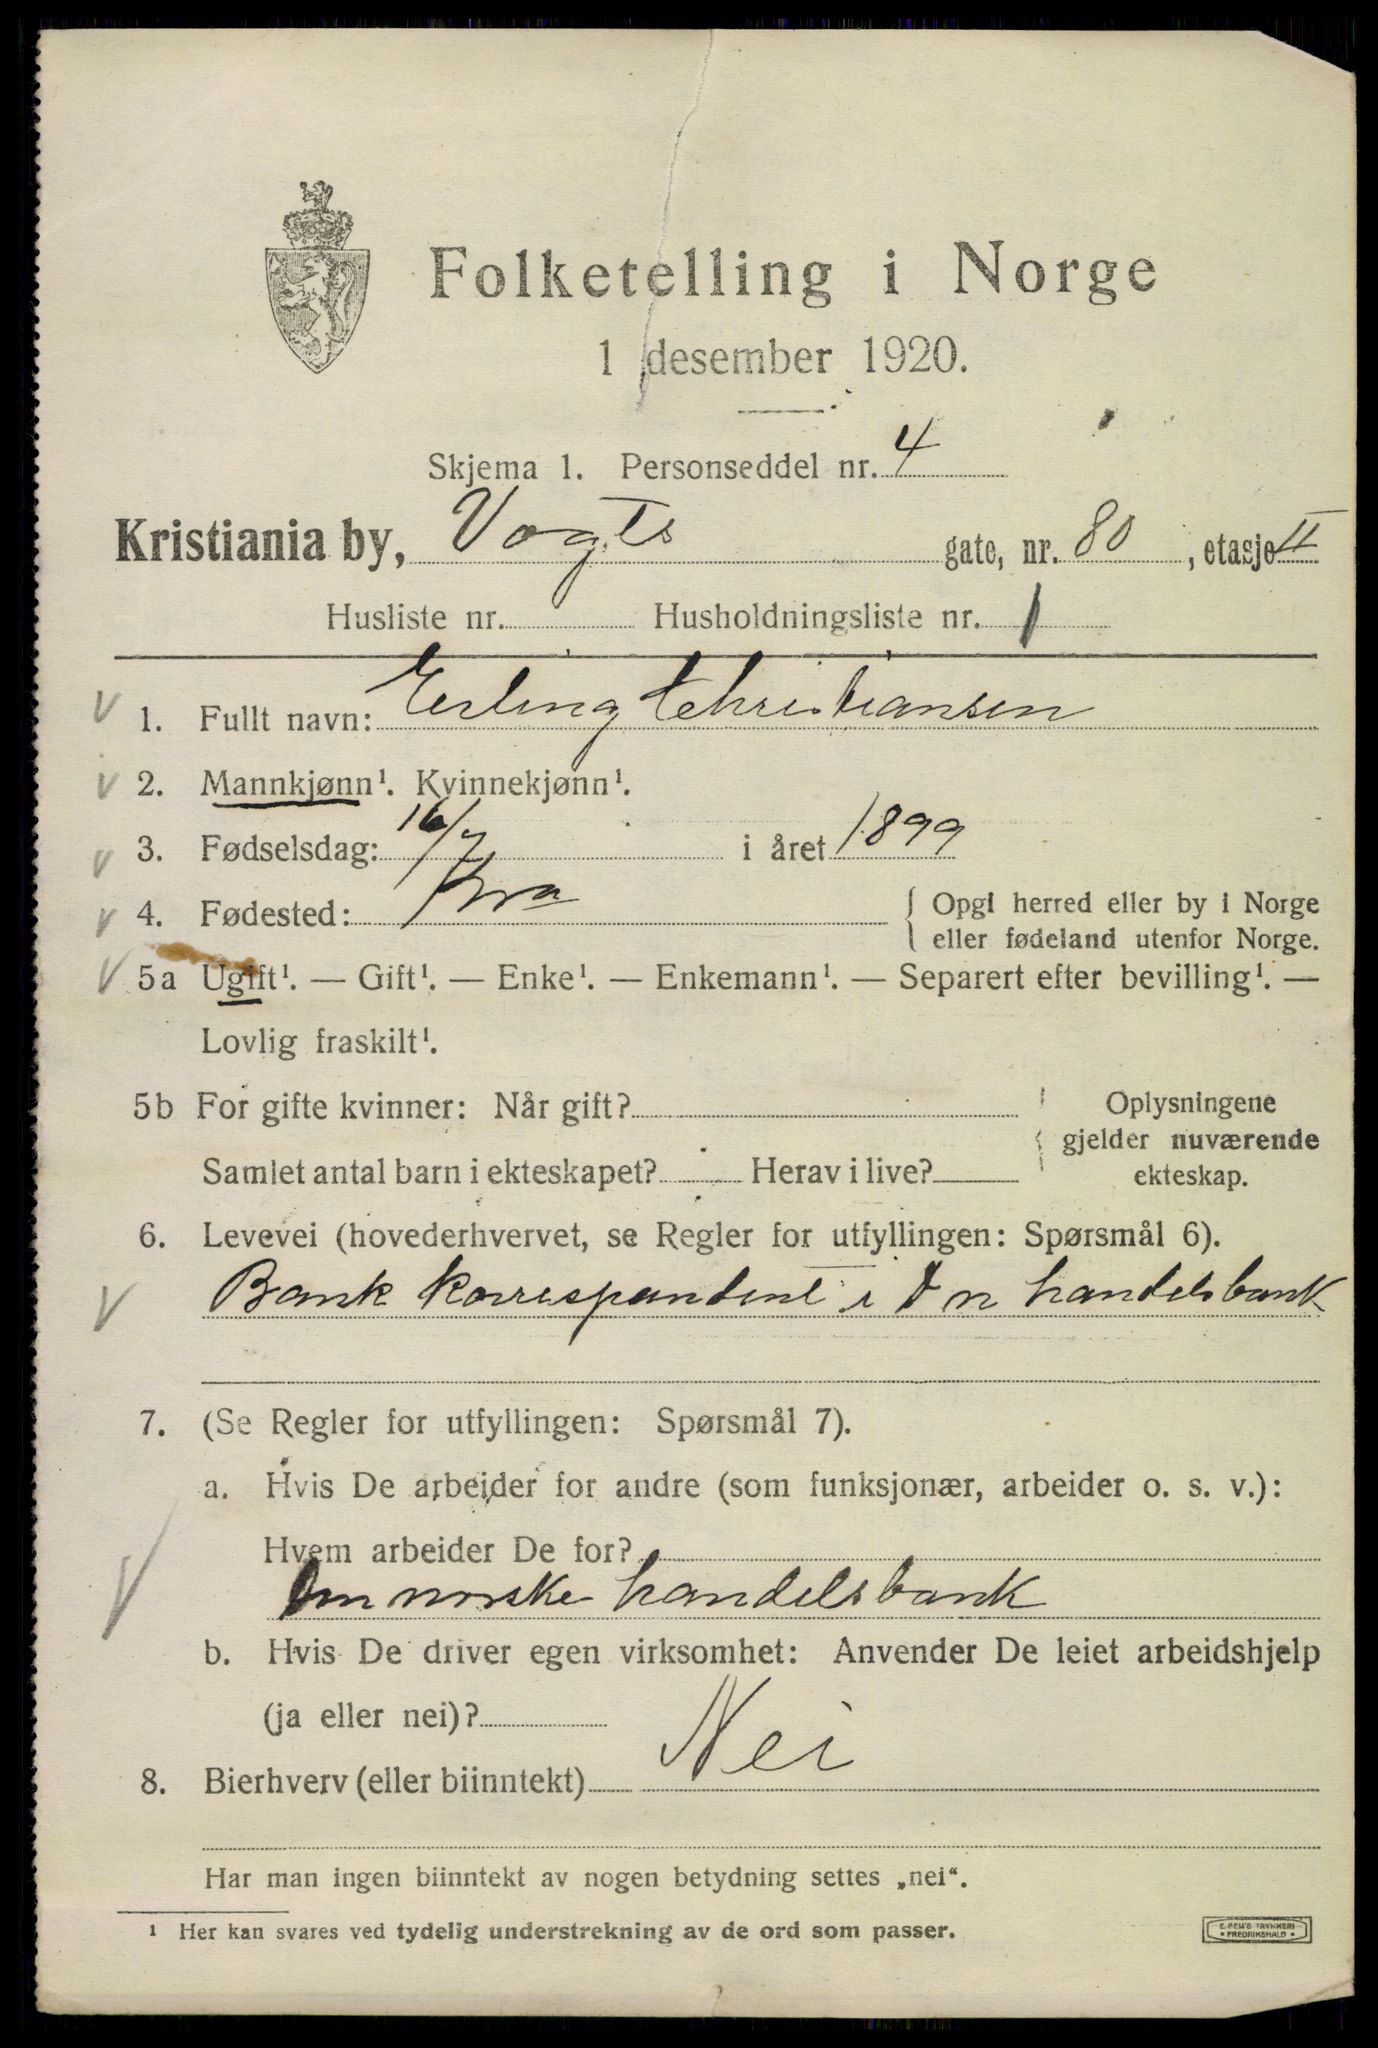 Folketelling i Norge
1 desember 1920.
Skjema 1. Personseddel nr. 4
Kristiania by, Vogts gate, nr. 80, etasje II
Husliste nr. Husholdningsliste nr. 1
1. Fullt navn: Erling Christiansen
2. Mannkjønn¹. Kvinnekjønn¹.
3. Fødselsdag: 16/7 i året 1899
4. Fødested: Kra { Opgi herred eller by i Norge
eller fødeland utenfor Norge.
5a Ugift¹. — Gift¹. — Enke¹. — Enkemann¹. — Separert efter bevilling¹. —
Lovlig fraskilt¹.
5b For gifte kvinner: Når gift? Oplysningene
gjelder nuværende
Samlet antal barn i ekteskapet? Herav i live? ekteskap.
6. Levevei (hovederhvervet, se Regler for utfyllingen: Spørsmål 6).
Bank korrespondent i D n handelsbank
7. (Se Regler for utfyllingen: Spørsmål 7).
a. Hvis De arbeider for andre (som funksjonær, arbeider o. s. v.):
Hvem arbeider De for?
Den norske handelsbank
b. Hvis De driver egen virksomhet: Anvender De leiet arbeidshjelp
(ja eller nei)?
8. Bierhverv (eller biinntekt) Nei
Har man ingen biinntekt av nogen betydning settes „nei“.
¹ Her kan svares ved tydelig understrekning av de ord som passer.
E. SEM'S TRYKKERI
• FREDRIKSHALD •